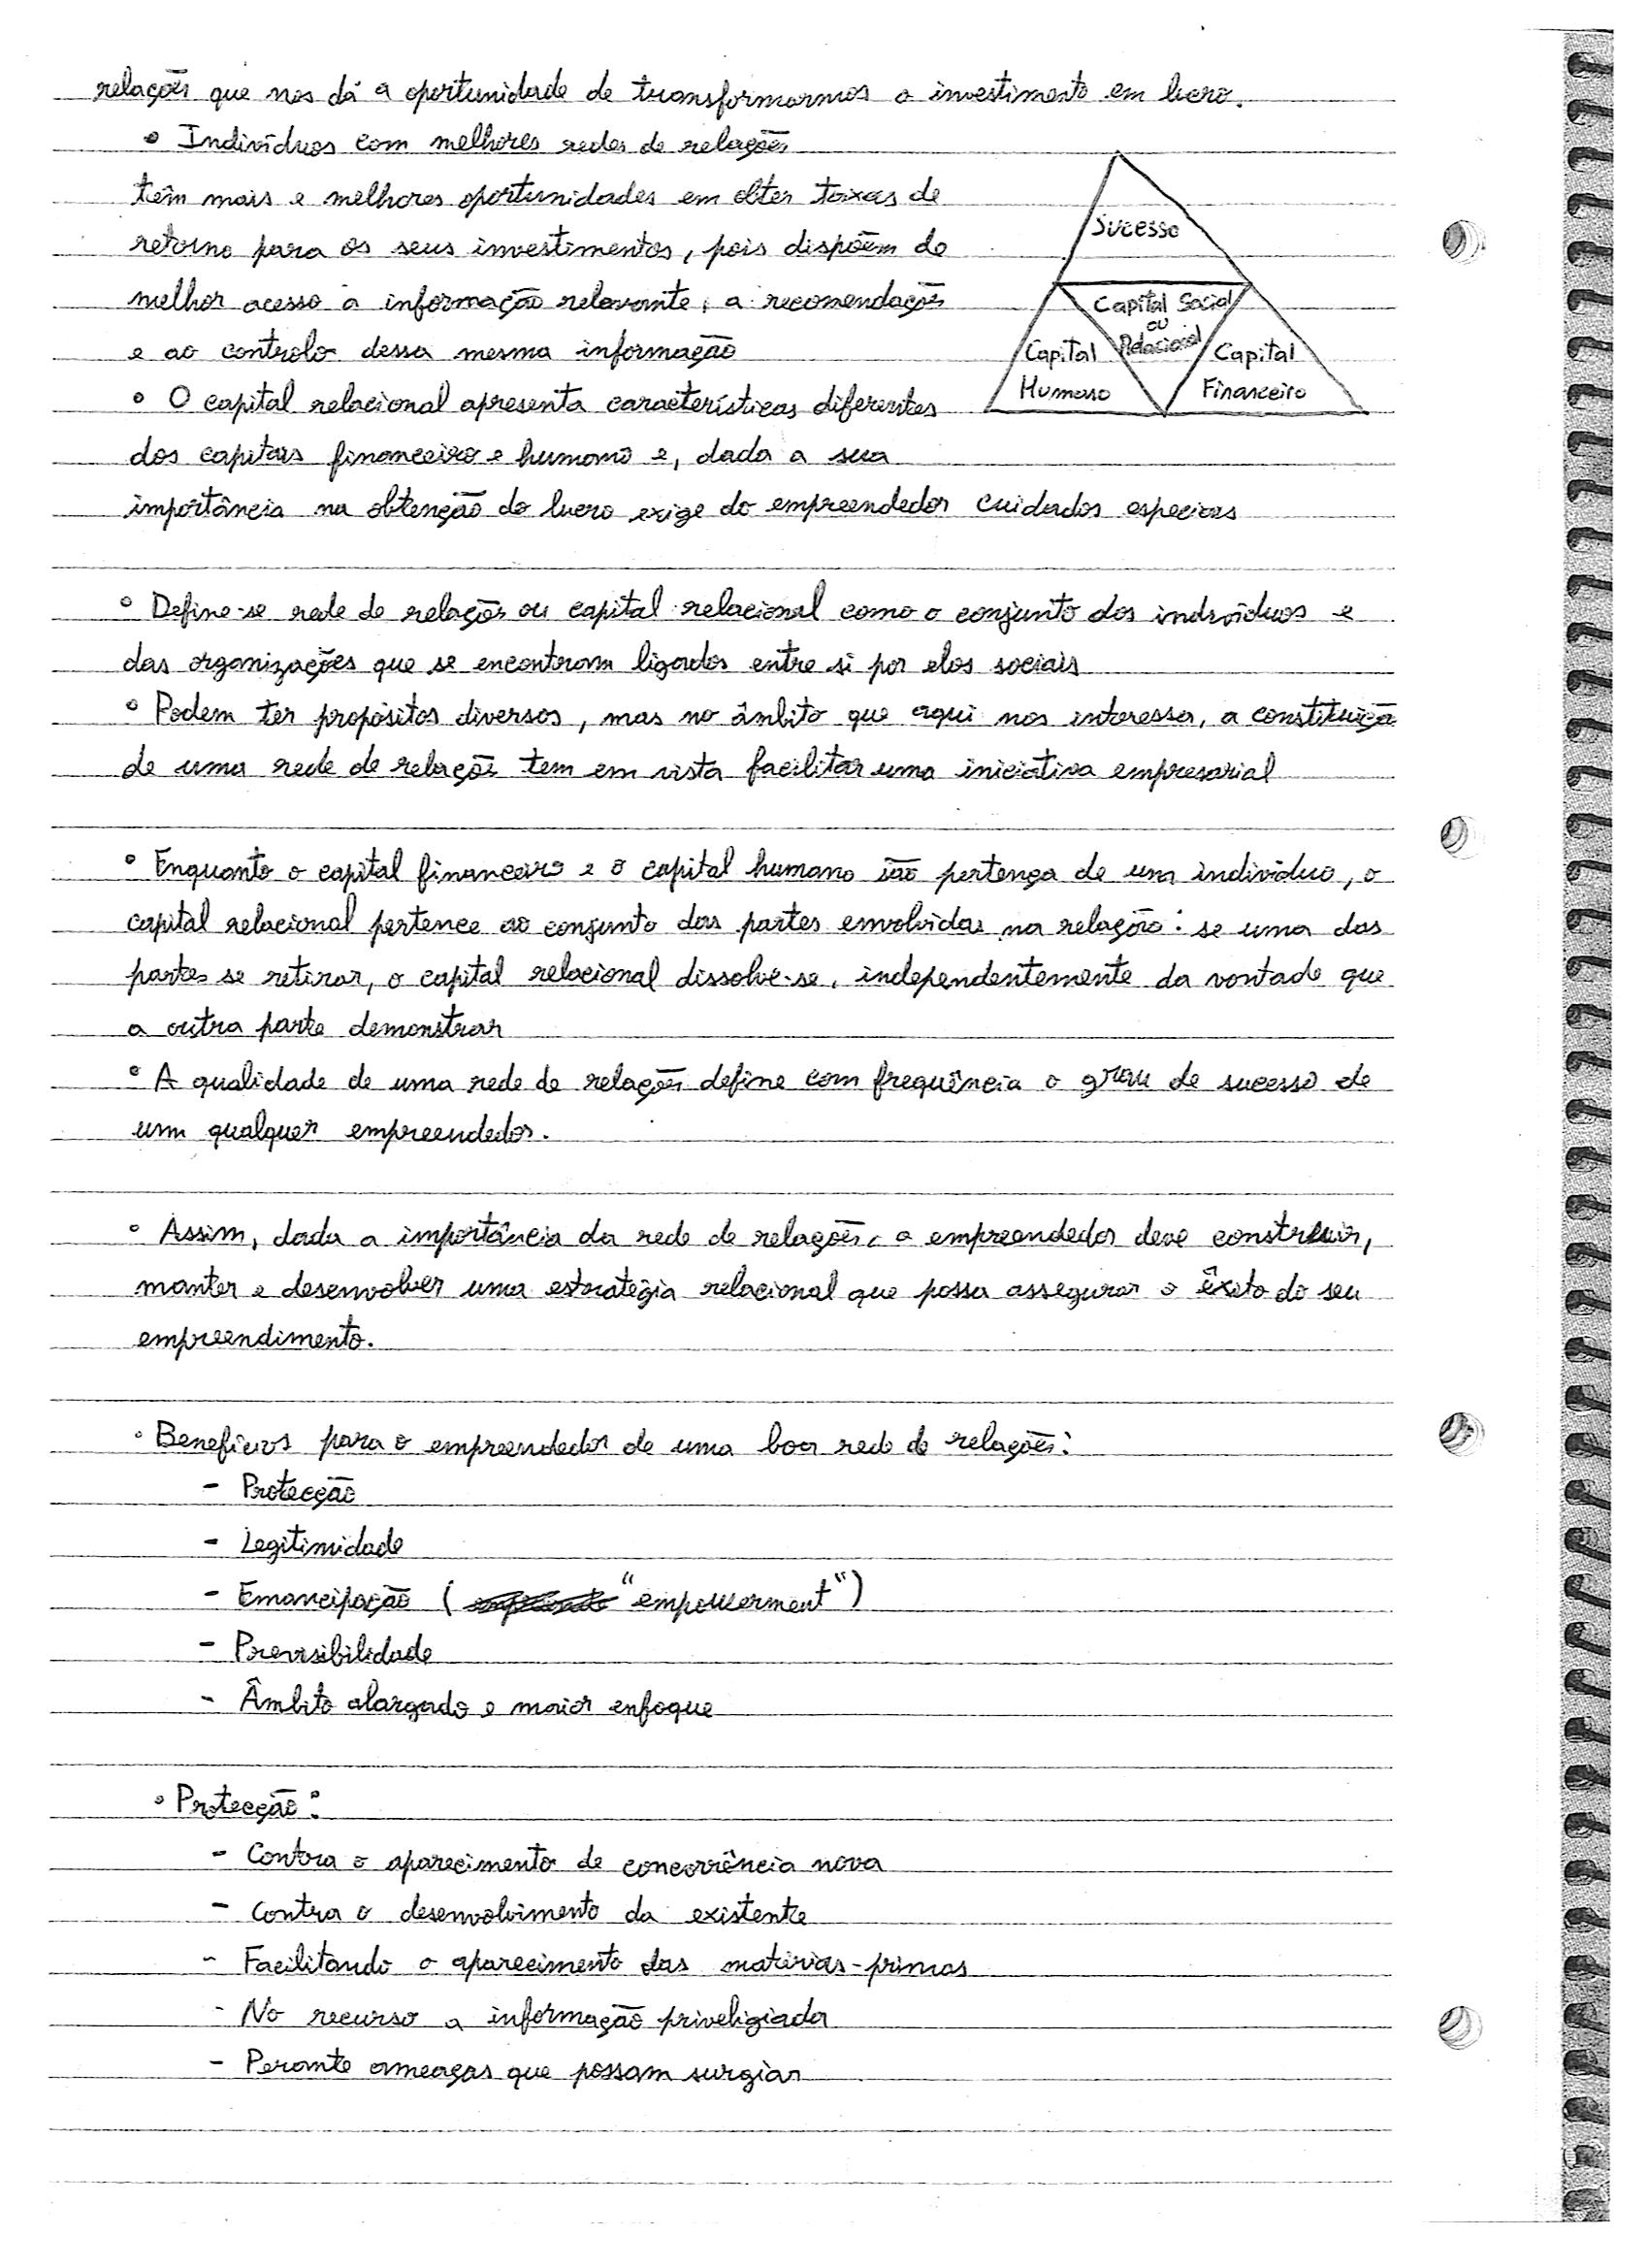 relações que nos dá a oportunidade de transformarmos o investimento em lucro.
• Indivíduos com melhores redes de relações
têm mais e melhores oportunidades em obter taxas de
retorno para os seus investimentos, pois dispõem de
melhor acesso a informação relevante, a recomendações
e ao controlo dessa mesma informação
• O capital relacional apresenta características diferentes
dos capitais financeiro e humano e, dada a sua
importância na obtenção do lucro exige do empreendedor cuidados especiais
Sucesso
Capital Social
ou
Relacional
Capital
Humano
Capital
Financeiro
• Define-se rede de relações ou capital relacional como o conjunto dos indivíduos e
das organizações que se encontram ligados entre si por elos sociais
• Podem ter propósitos diversos, mas no âmbito que aqui nos interessa, a constituiçã
de uma rede de relações tem em vista facilitar uma iniciativa empresarial
• Enquanto o capital financeiro e o capital humano são pertença de um indivíduo, o
capital relacional pertence ao conjunto das partes envolvidas na relação: se uma das
partes se retirar, o capital relacional dissolve-se, independentemente da vontade que
a outra parte demonstrar
• A qualidade de uma rede de relações define com frequência o grau de sucesso de
um qualquer empreendedor.
• Assim, dada a importância da rede de relações, o empreendedor deve construir,
manter e desenvolver uma estratégia relacional que possa assegurar o êxito do seu
empreendimento.
• Benefícios para o empreendedor de uma boa rede de relações:
- Protecção
- Legitimidade
- Emancipação ( "empowerment")
- Previsibilidade
- Âmbito alargado e maior enfoque
• Protecção:
- Contra o aparecimento de concorrência nova
- Contra o desenvolvimento da existente
- Facilitando o aparecimento das matérias-primas
- No recurso a informação priveligiada
- Perante ameaças que possam surgiar